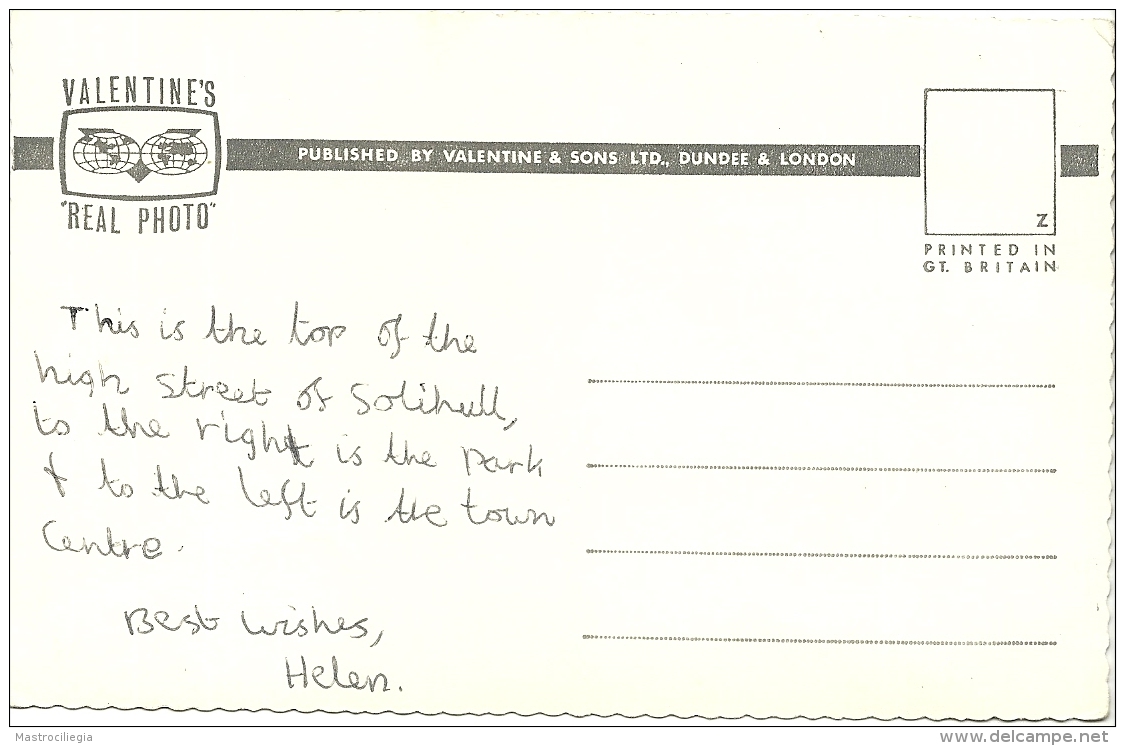 VALENTINE'S
"REAL PHOTO"
PUBLISHED BY VALENTINE & SONS LTD., DUNDEE & LONDON
Z
PRINTED IN
GT. BRITAIN
This is the top of the
high street of Solihull,
to the right is the park
& to the left is the town
Centre.
Best wishes,
Helen.
Mastrociliegia
www.delcampe.net